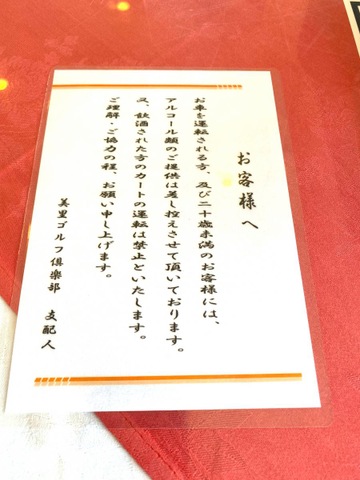 お客様へ
お車を運転される方、及び二十歳未満のお客様には、
アルコール類のご提供は差し控えさせて頂いております。
又、飲酒された方のカートの運転は禁止といたします。
ご理解・ご協力の程、お願い申し上げます。
美里ゴルフ倶楽部 支配人